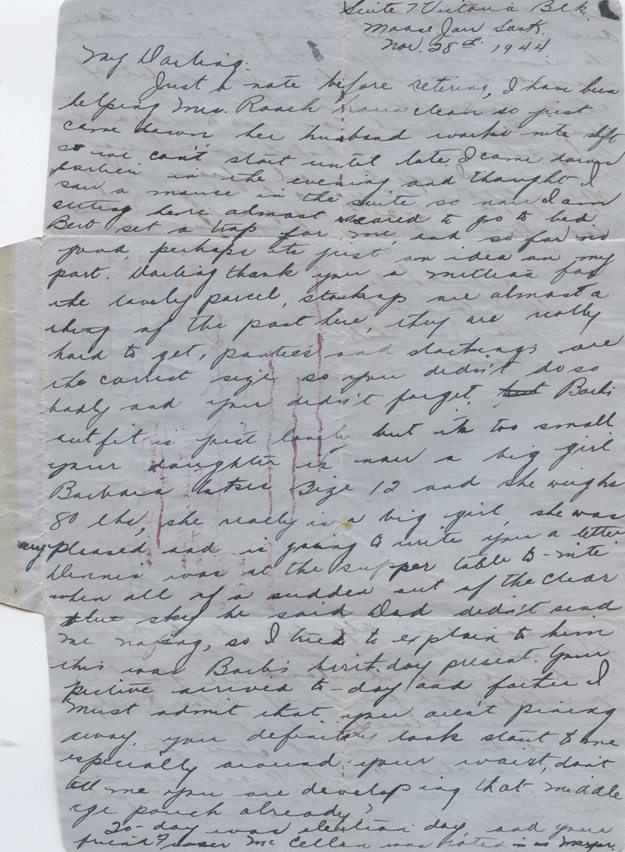 Suite 7 Victoria Blk.
Moose Jaw Sask.
Nov. 28th 1944
My Darling:
Just a note before retiring, I have been
helping Mrs. Roach house clean so just
came down her husband works nite sft
so we can't start until late I came down
earlier in the evening and thought I
saw a mouse in the suite so now I am
sitting here almost scared to go to bed
Berb set a trap for me, and so far no
good, perhaps its just an idea on my
part. Darling thank you a million for
the lovely parcel, stockings are almost a
thing of the past here, they are really
hard to get, panties and stockings are
the correct size so you didn't do so
badly and you didn't forget, Barb's
outfit is just lovely but its too small
your daughter is now a big girl
Barbara takes size 12 and she weighs
80 lbs, she really is a big girl, she was
very pleased and is going to write you a letter
Dennis was at the supper table to-nite
when all of a sudden out of the clear
blue sky he said Dad didn't send
me nofing, so I tried to explain to him
this was Barb's birthday present. Your
picture arrived to-day and father I
must admit that you aren't pining
away. you definitely look stout to me
especially around your waist, don't
tell me you are developing that middle
age pouch already?
To-day was election day, and your
friend Mc Cellan was voted in as Mayor.